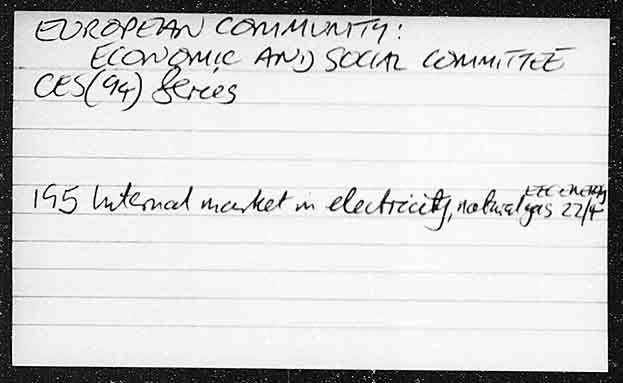 EUROPEAN COMMUNITY:
ECONOMIC AND SOCIAL COMMITTEE
CES(94) Series
EEC ENERGY
195 Internal market in electricity, natural gas 22/4